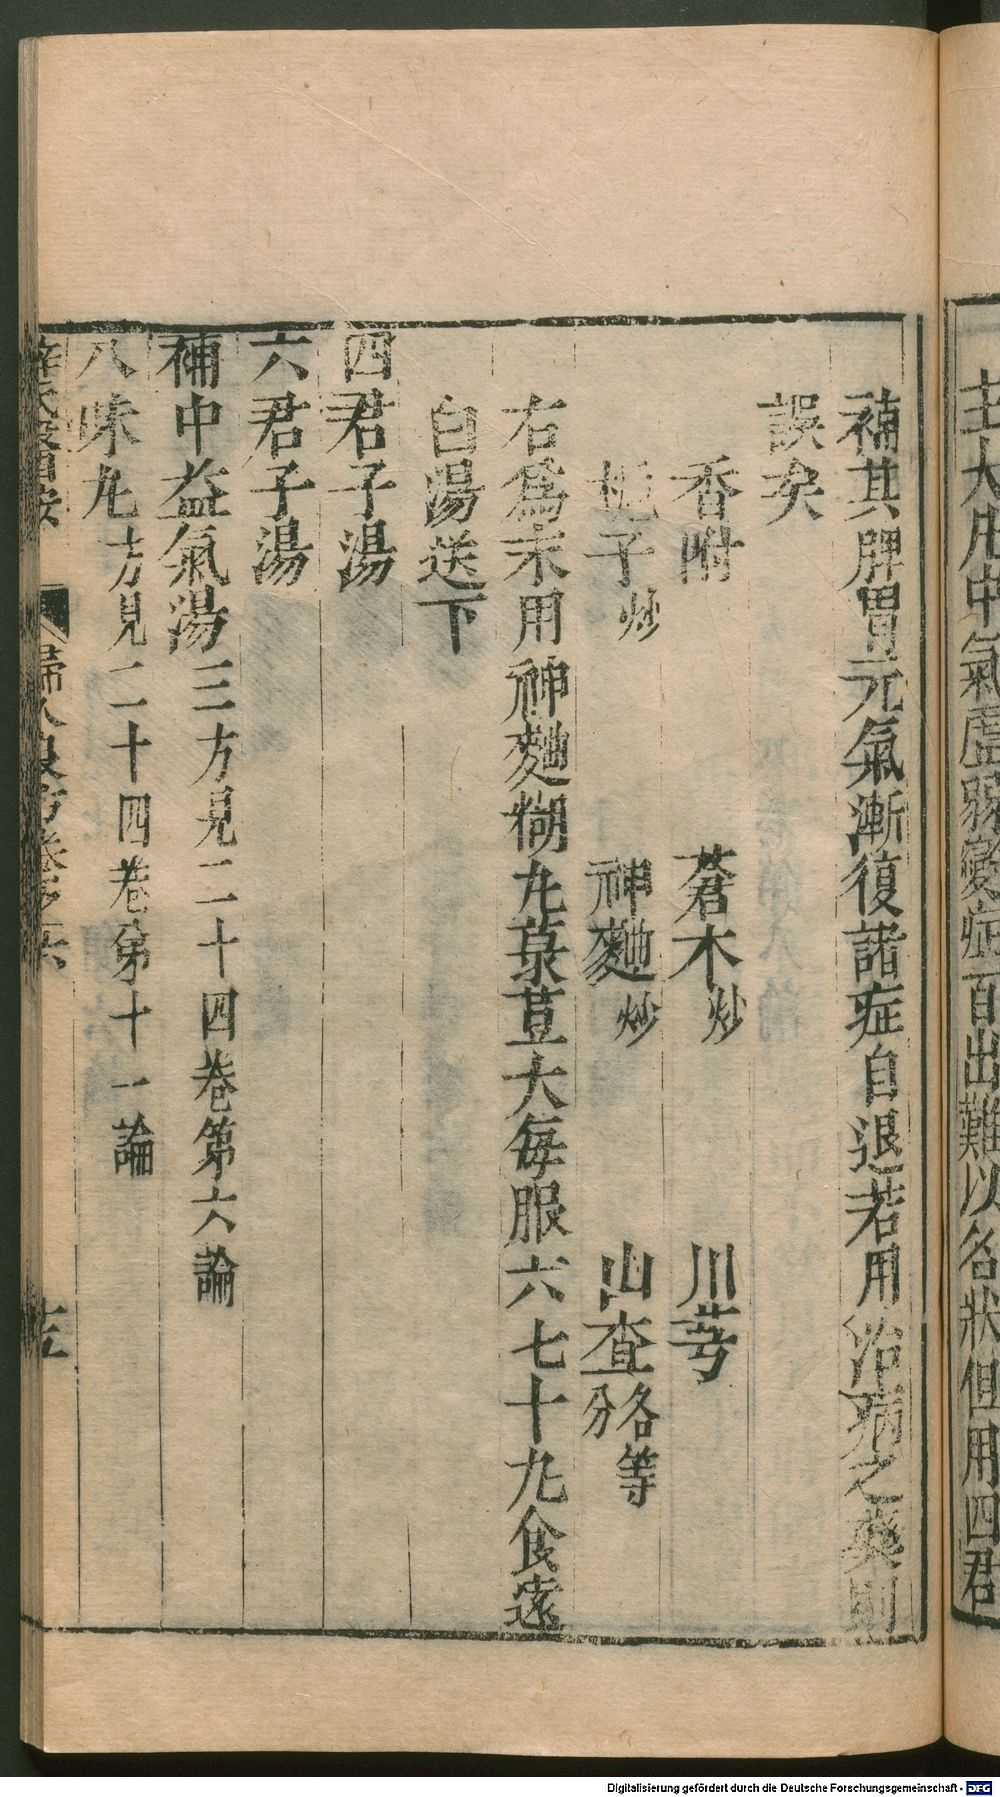 主大凡中氣虛弱變症百出難以名狀但用四君
補其脾胃元氣漸復諸症自退若用治病之藥則
誤矣
香附 蒼木炒 川芎
梔子炒 神麯炒 山查各等分
右爲末用神麯糊丸菉荳大每服六七十丸食遠
白湯送下
四君子湯
六君子湯
補中益氣湯三方見二十四卷第六論
八味丸方見二十四卷第十一論
薛氏醫按 婦人良方卷之六
Digitalisierung gefördert durch die Deutsche Forschungsgemeinschaft - DFG